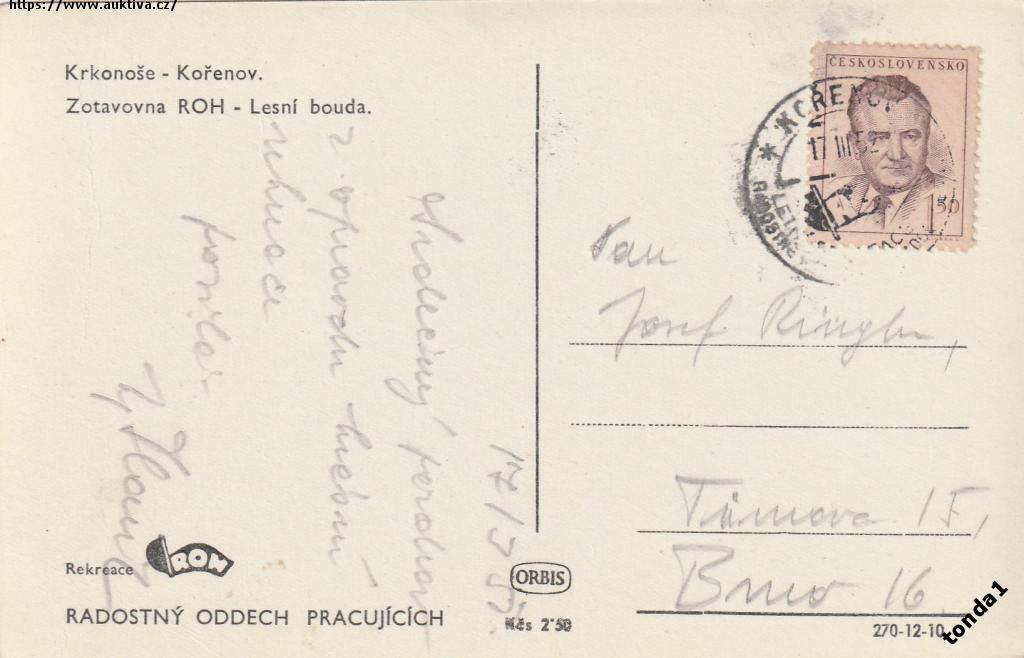 https://www.auktiva.cz/
Krkonoše - Kořenov.
Zotavovna ROH - Lesní bouda.
17/3
Srdečný pozdrav
z opravdu
posílá
Rekreace ROH
RADOSTNÝ ODDECH PRACUJÍCÍCH
ORBIS
Kčs 2'50
ČESKOSLOVENSKO
1,50
* KOŘENOV
17 III 52
Pan
Josef
Tůmova 15,
Brno 16.
270-12-10
tonda1